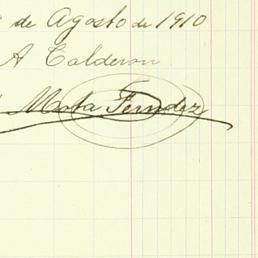 de Agosto de 1910
A Calderon
Marta Ferndez